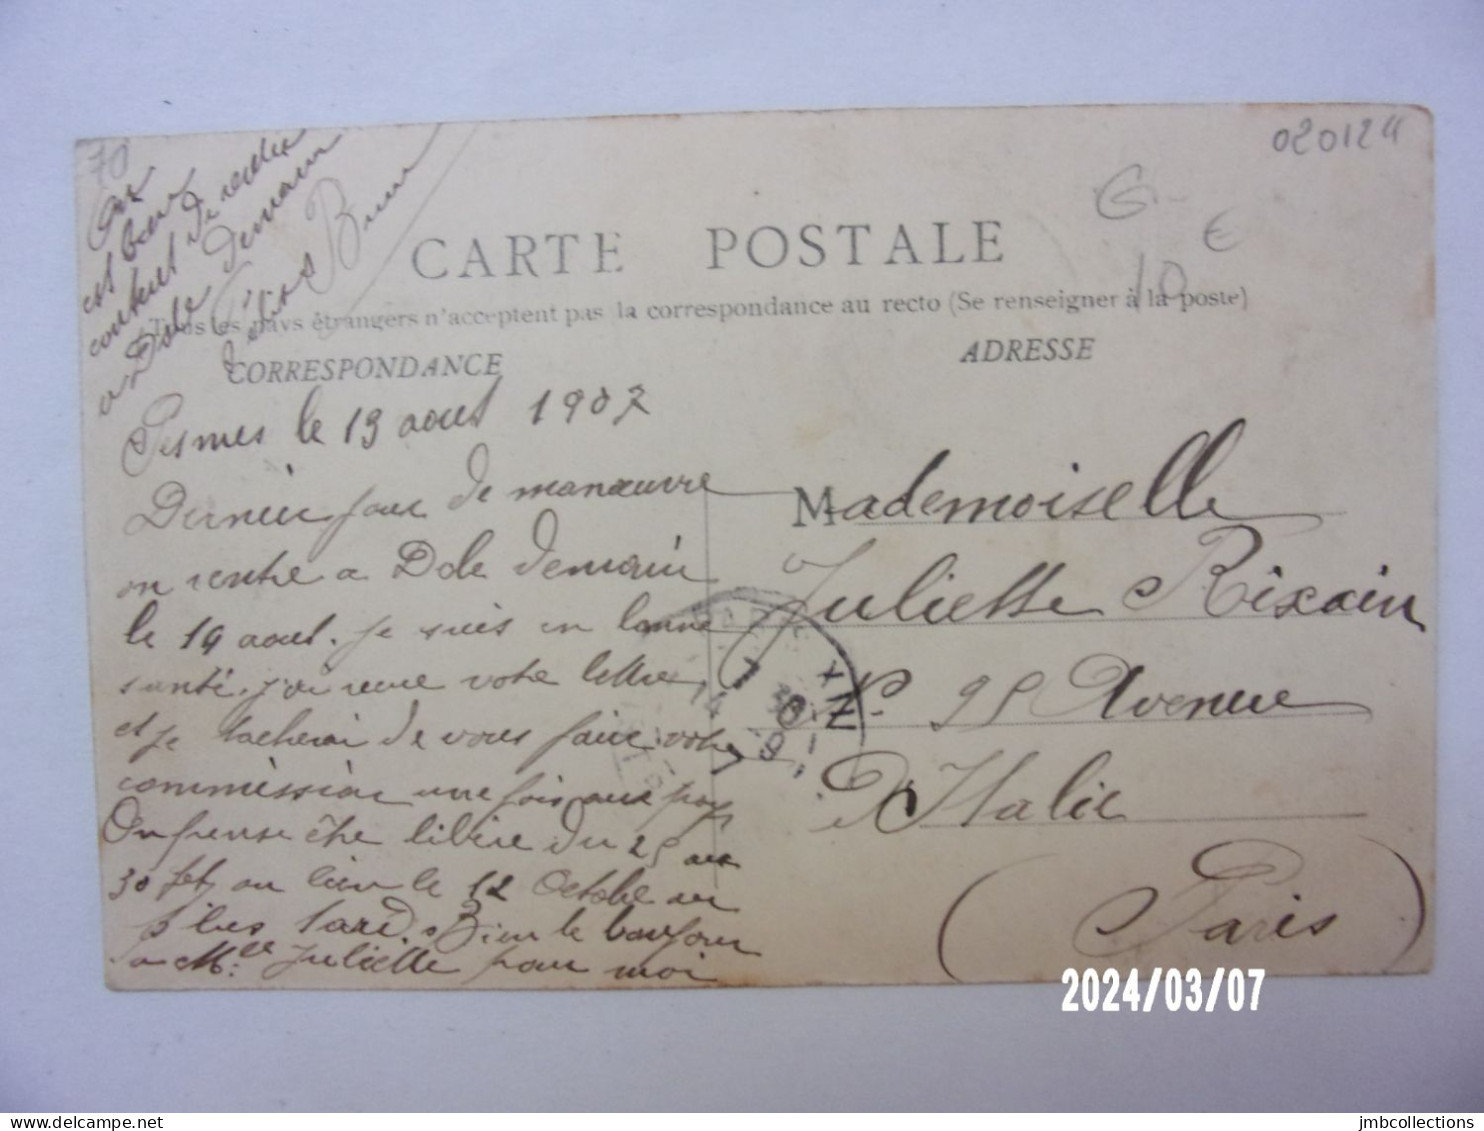 70
020124
G-
10 €
on
est bien
content de rentrer
a Dole demain
Félix Brun
CARTE POSTALE
Tous les pays étrangers n'acceptent pas la correspondance au recto (Se renseigner à la poste)
CORRESPONDANCE
ADRESSE
Pesmes le 13 aout 1907
Dernier jour de manœuvre
on rentre a Dole demain
le 14 aout. Je suis en bonne
santé. j'ai reçue votre lettre,
et je tacherai de vous faire votre
commission une fois aux pays
On pense être libère du 25 au
30 sept, ou bien le 12 Octobre au
plus tard. Bien le bonjour
a Mlle Juliette pour moi
Mademoiselle
Juliette Rixain
No. 95 Avenue
d'Italie
(Paris)
XIN
2024/03/07
jmbcollections
delcampe.net